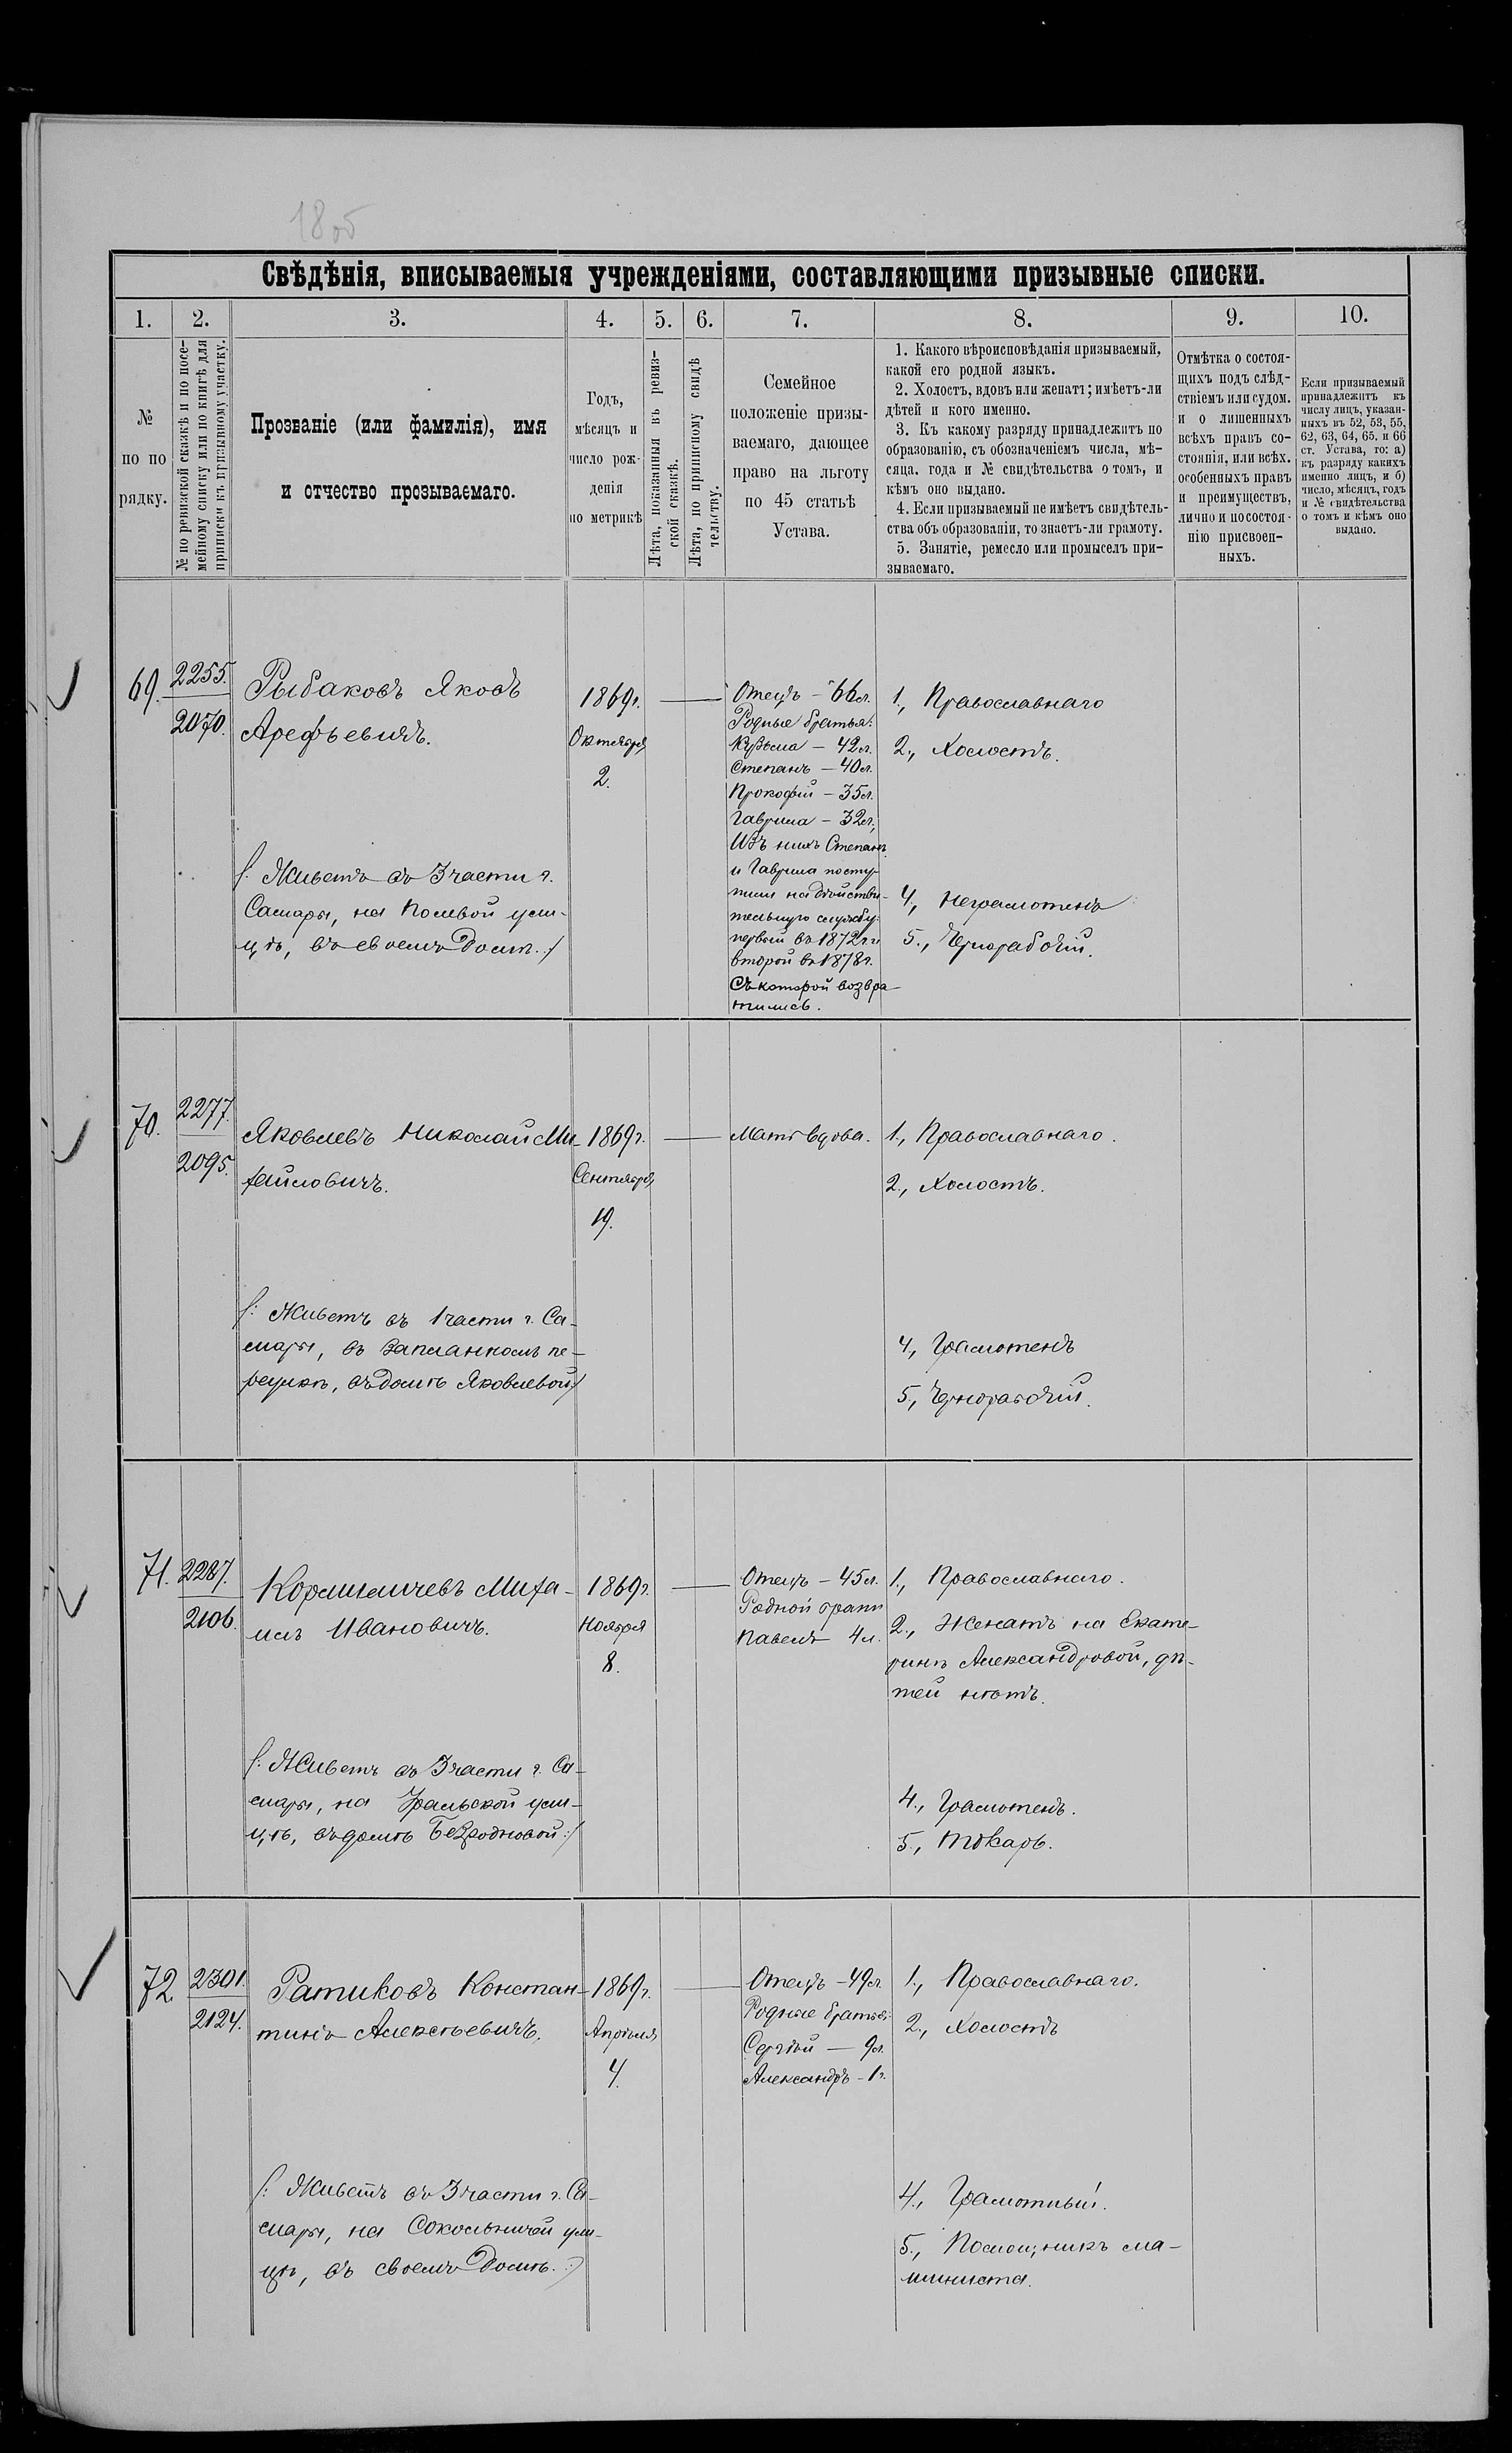 18об
Свѣдѣнія, вписываемыя учрежденіями, составляющими призывные списки.
1. 2. 3. 4. 5. 6. 7. 8. 9. 10.
№
по по
рядку.
№ по ревизской сказкѣ и по посе-
мейному списку или по книгѣ для
приписки къ призывному участку.
Прозваніе (или фамилія), имя
и отчество прозываемаго.
Годъ,
мѣсяцъ и
число рож-
денія
по метрикѣ
Лѣта, показанныя въ ревиз-
ской сказкѣ.
Лѣта, по приписному свидѣ
тельству.
Семейное
положеніе призы-
ваемаго, дающее
право на льготу
по 45 статьѣ
Устава.
1. Какого вѣроисповѣданія призываемый,
какой его родной языкъ.
2. Холостъ, вдовъ или женатъ; имѣетъ-ли
дѣтей и кого именно.
3. Къ какому разряду принадлежитъ по
образованію, съ обозначеніемъ числа, мѣ-
сяца. года и № свидѣтельства о томъ, и
кѣмъ оно выдано.
4. Если призываемый не имѣетъ свидѣтель-
ства объ образованіи, то знаетъ-ли грамоту.
5. Занятіе, ремесло или промыселъ при-
зываемаго.
Отмѣтка о состоя-
щихъ подъ слѣд-
ствіемъ или судом.
и о лишенныхъ
всѣхъ правъ со-
стоянія, или всѣх.
особенныхъ правъ
и преимуществъ,
лично и по состоя-
нію присвоен-
ныхъ.
Если призываемый
принадлежитъ къ
числу лицъ, указан-
ныхъ въ 52, 53, 55,
62, 63, 64, 65. и 66
ст. Устава, то: а)
къ разряду какихъ
именно лицъ, и б)
число, мѣсяцъ, годъ
и № свидѣтельства
о томъ и кѣмъ оно
выдано.
69.
2255.
2070.
Рыбаковъ Яковъ
Арефьевичъ.
/: Живетъ въ 3 части г.
Самары, на Полевой ули-
цѣ, въ своемъ домѣ. :/
1869 г.
Октября
2.
Отецъ – 66 л.
Родные братья:
Кузьма – 42 л.
Степанъ – 40 л.
Прокофій – 35 л.
Гаврила – 32 л.,
Изъ нихъ Степанъ
и Гаврила посту-
пили на дѣйстви-
тельную службу:
первый въ 1872 г. и
второй въ 1878 г.
Съ которой возвра-
тились.
1., Православнаго
2., Холостъ.
4., Неграмотенъ
5., Чернорабочій.
70.
2277.
2095.
Яковлевъ Николай Ми-
хайловичъ.
/: Живетъ въ 1 части г. Са-
мары, въ Запланномъ пе-
реулкѣ, въ домѣ Яковлевой :/
1869 г.
Сентября
19.
Мать вдова.
1., Православнаго.
2., Холостъ.
4., Грамотенъ
5., Чернорабочій.
71.
2287.
2106.
Михаилъ Ивановичъ.
/: Живетъ въ 3 части г. Са-
мары, на Уральской ули-
цѣ, въ домѣ Безродновой :/
1869 г.
Ноября
8.
Отецъ – 45 л.
Родной братъ
Павелъ 4 л.
1., Православнаго.
2., Женатъ на Екате-
ринѣ Александровой, дѣ-
тей нѣтъ.
4., Грамотенъ.
5., Токарь.
72
2301.
2124.
Ратиковъ Констан-
тинъ Алексѣевичъ.
/: Живетъ въ 3 части г. Са-
мары, на Сокольничей ули-
цѣ, въ своемъ домѣ. :/
1869 г.
Апрѣля
4.
Отецъ – 49 л.
Родные братья:
Сергѣй – 9 л.
Александръ – 1 г.
1., Православнаго.
2., Холостъ
4., Грамотный.
5., Помощникъ ма-
шиниста.